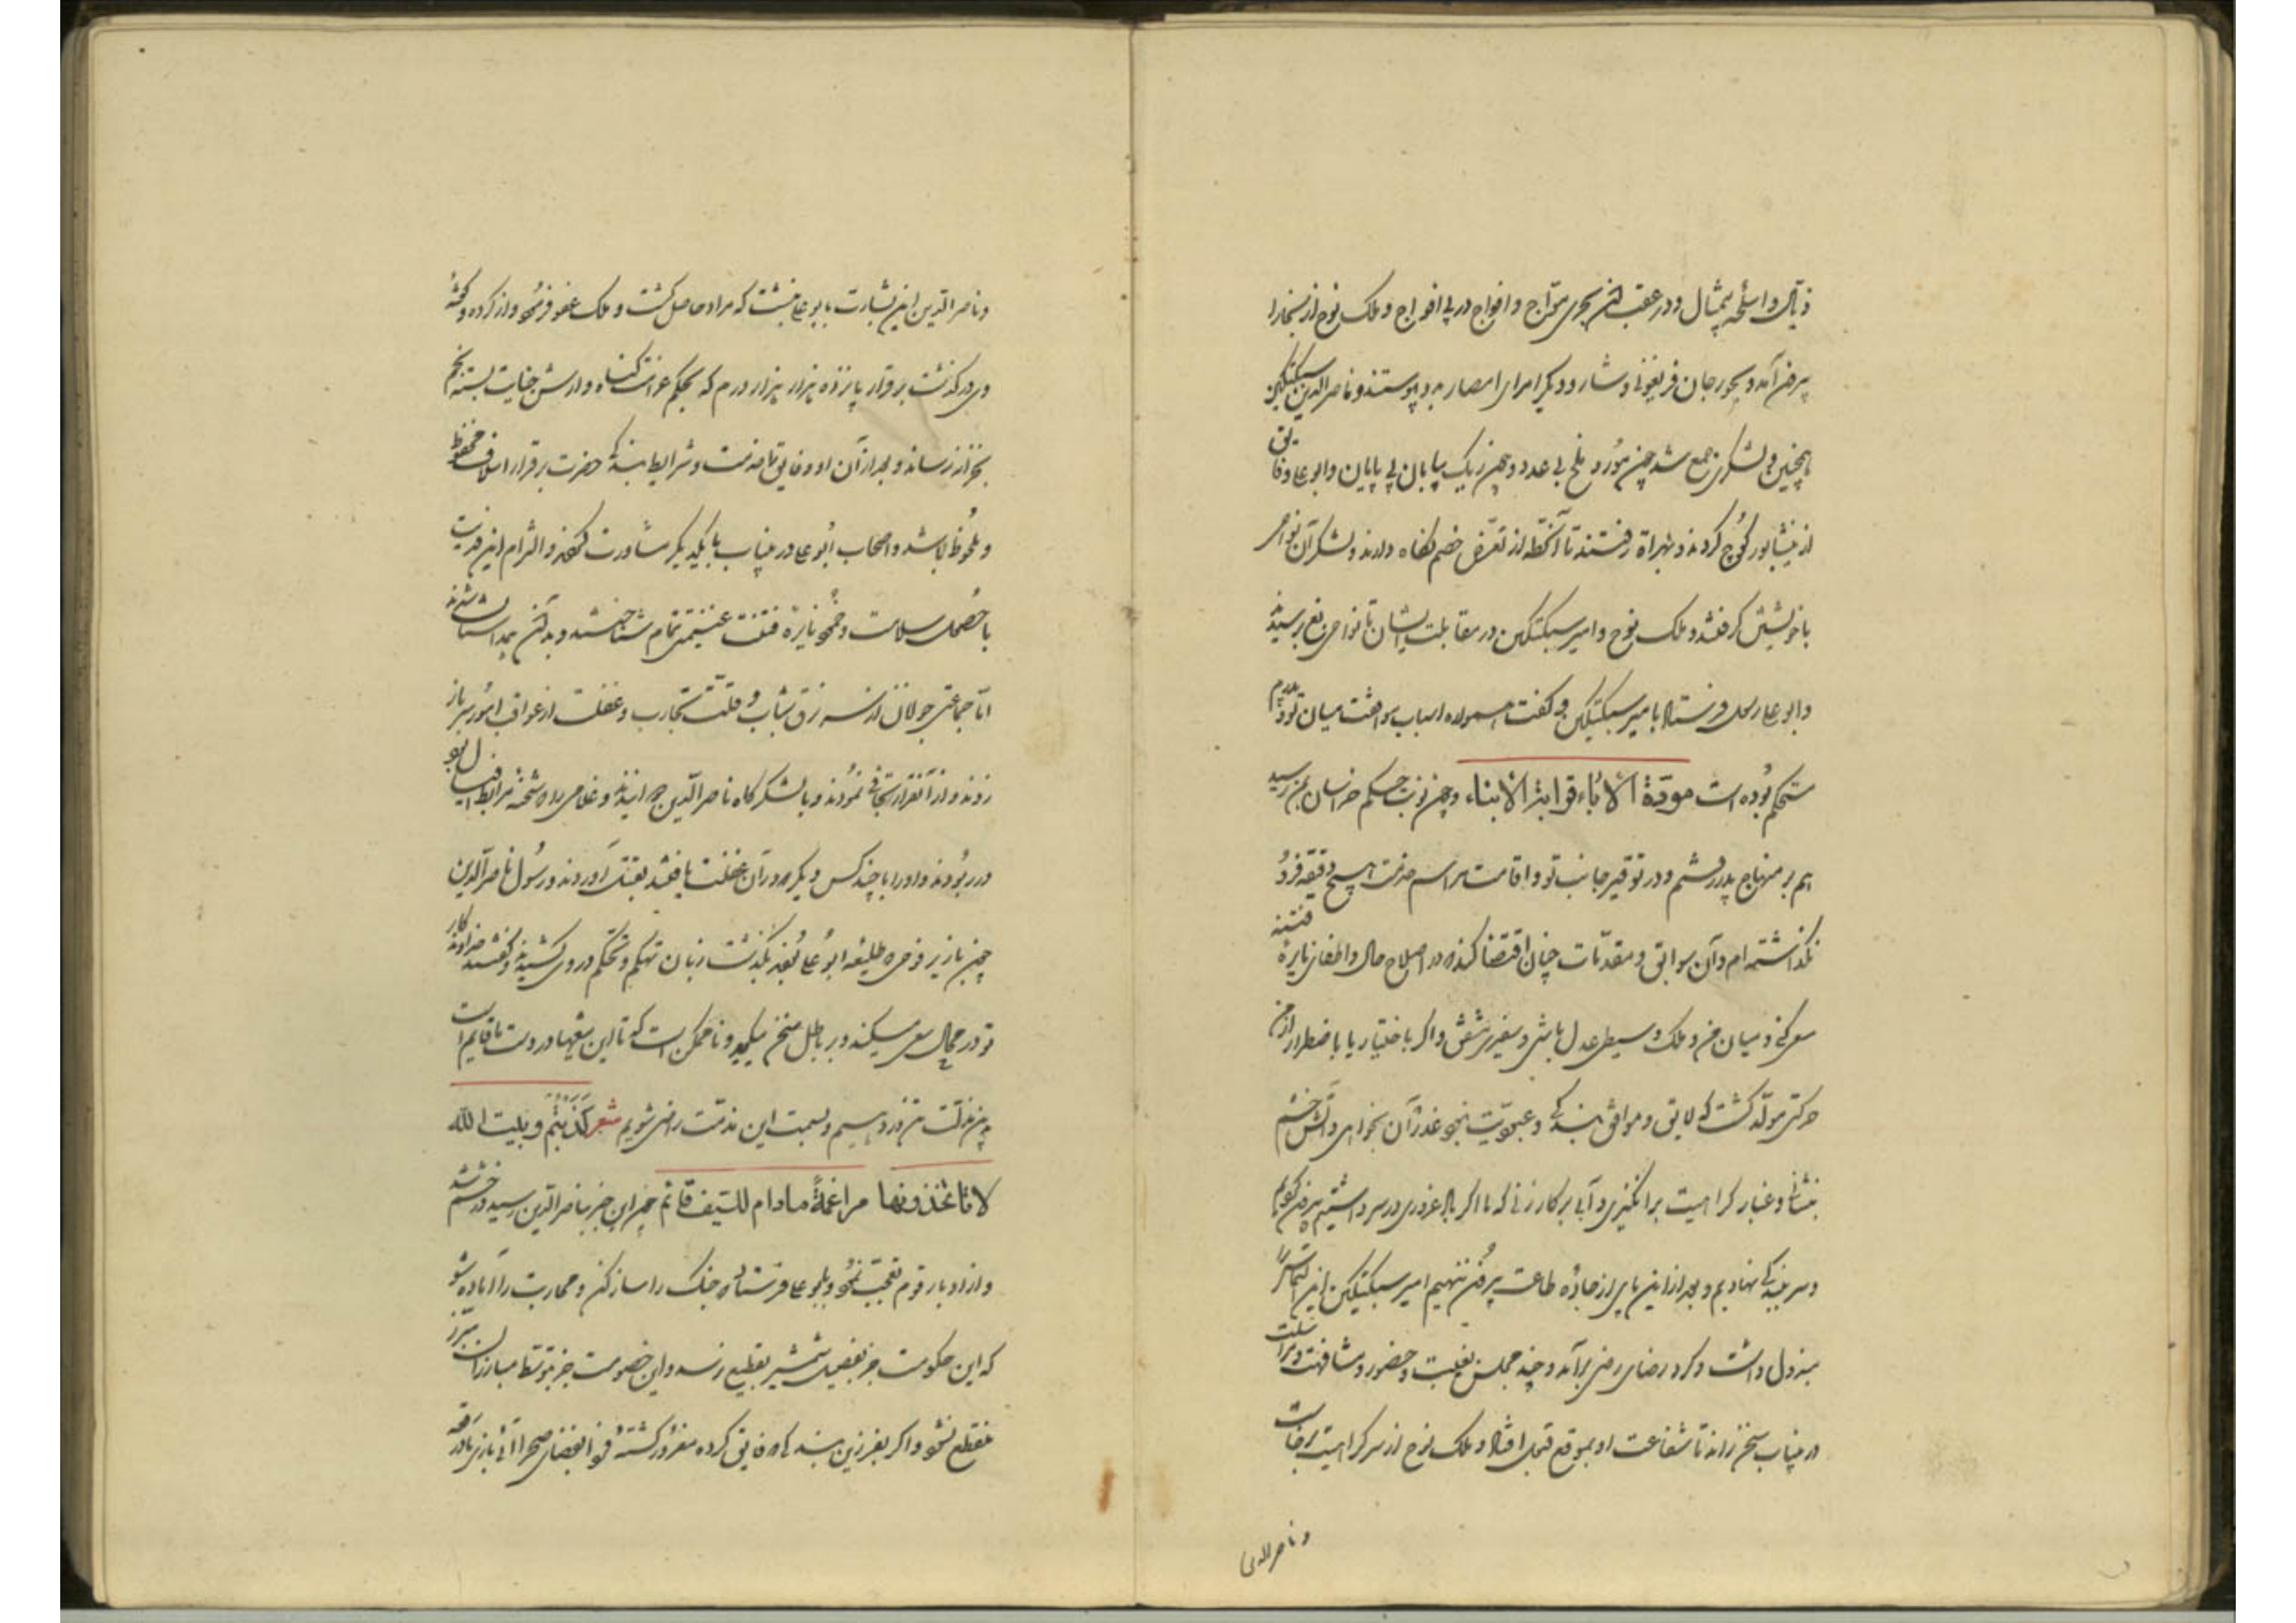 ذیال و اسلحه بیمثال و در عقب این بحری موّاج و افواج در پی افواج و ملک نوح از بخارا
بیرون آمد و بجورجان فریغونی و شار و دیگر امرای امصار بدو پیوستند و ناصرالدین سبکتکین
همچنین و لشکری جمع شد چون مور و ملخ بی عدد و چون ریک بیابان بی پایان و ابوعلی و فایق
از نیشابور کوچ کردند و بهراة رفتند تا آن خطه از تعرّض خصم نگاه دارند و لشکر آن نواحی
با خویشتن گرفتند و ملک نوح و امیر سبکتکین در مقابلت ایشان تا نواحی بغ رسیدند
و ابوعلی رسول فرستاد بامیر سبکتکین و گفت همواره اسباب موافقت میان تو و پدرم
مستحکم بوده است مودّة الآباء قرابة الابناء و چون نوبت حکم خراسان بمن رسید
هم بر منهاج پدر رفتم و در توقیر جانب تو و اقامت مراسم خدمت هیچ دقیقه فرو
نگذاشته ام و آن سوابق و مقدّمات چنان اقتضا کند که در اصلاح حال و اطفای نایرهٔ فتنه
سعی کنی و میان من و ملک وسیطی عدل باشی و سفیری مشفق و اگر باختیار یا باضطرار از من
حرکتی مولّد گشت که لایق و موافق بندگی و عبودیّت نبود عذر آن بخواهی و آتش خشم
بنشانی و غبار کراهیت برانگیزی و آبی بر کار زنی که ما اگر باد غروری در سر داشتیم بیرون کردیم
و سر ببندگی نهادیم و بعد از این پای از جادّه طاعت بیرون ننهیم امیر سبکتکین این التماس را
مبذول داشت و گرد رضای رضی برآمد و چند مجلس بغیبت و حضور و مشافهت و مراسلت
در این باب سخن راند تا شفاعت او بموقع قبول افتاد و ملک نوح از سر کراهیت برخاست
و ناصرالدین
و ناصرالدین این بشارت بابوعلی نبشت که مراد حاصل گشت و ملک عفو فرمود و از کرده و گفته
وی درگذشت بر قرار پانزده هزار هزار درم که بحکم غرامت گناه و ارش جنایت بسته نجم
بخزانه رساند و بعد از آن او و فایق تا خدمت و شرایط بندگی حضرت بر قرار اسلاف محفوظ
و ملحوظ باشد و اصحاب ابوعلی در این باب با یکدیگر مشاورت کردند و التزام این فدیت
با حصول سلامت و خمود نایره فتنت غنیمتی تمام شناختند و بدان همداستان شدند
امّا جماعتی جوانان از سر نزق شباب و قلّت تجارب و غفلت از عواقب امور سر باز
زدند و از آن قرار تجافی نمودند و بلشکرگاه ناصرالدین و غلامی را که شحنه مرابط افیال بود
در ربودند و او را با چند کس دیگر که در آن غفلت یافتند بقتل آوردند و رسول ناصرالدین
چون باز پس طلیعه ابوعلی بگذشت زبان تهکم و تحکم در وی کشیدند و گفتند خداوندگار
تو در محال سعی میکند و بر باطل سخن میگوید و ناممکن است که تا این تیغها در دست ما قایم است
بدین مذلّت تن در دهیم و بسمت این مذمّت راضی شویم شعر کذبتم و بیت الله
لا تاخذونها مراغمةً مادام للسّیف قائم چون این خبر بناصرالدین رسید در خشم شد
و از ادبار قوم تعجّب نمود و بابوعلی فرستاد که جنگ را ساز کن و محاربت را آماده شو
که این حکومت جز بفیصل شمشیر بقطع نرسد و این خصومت جز بتوسط مبارزان مبرّز
منقطع نشود و اگر بفرزین بند که فایق کرده مغرور گشتهٔ